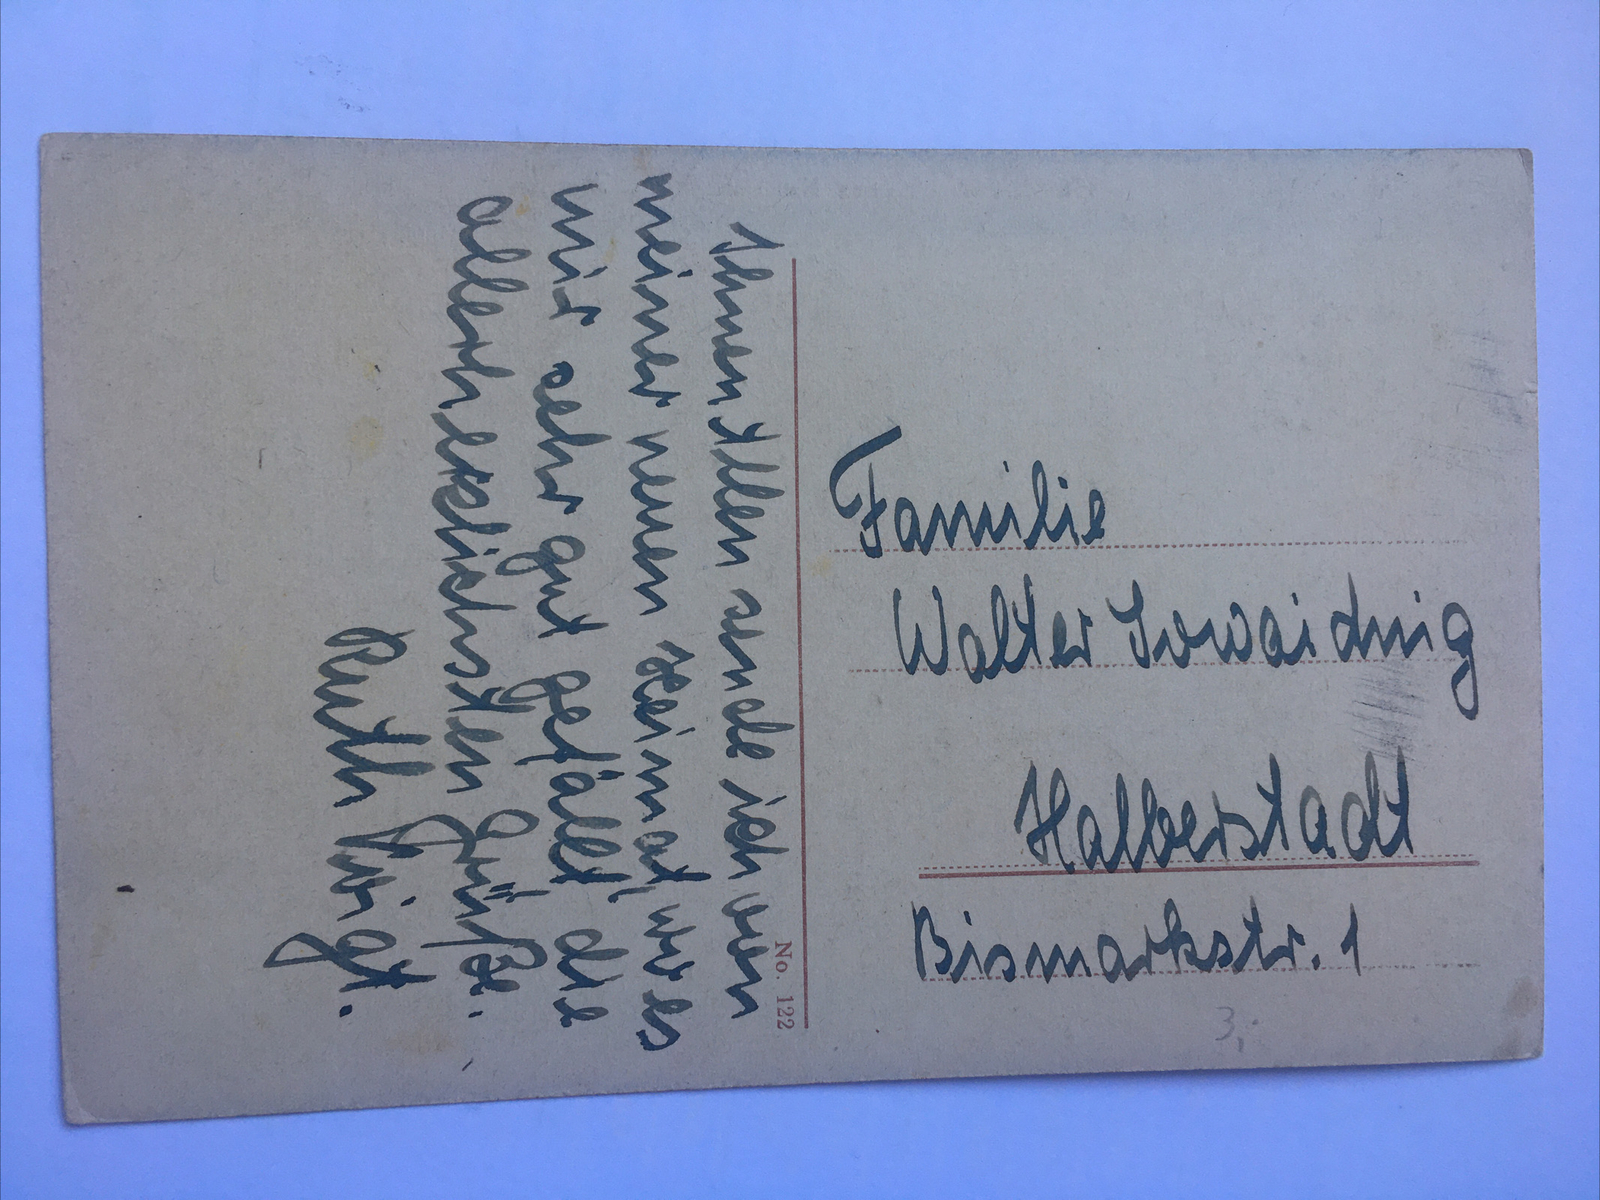 Ihnen Allen sende ich von
meiner neuen Heimat, wo es
mir sehr gut gefällt die
allerherzlichsten Grüße.
Ruth Voigt.
No. 122
Familie
Walter
Halberstadt
Bismarkstr. 1
3,-